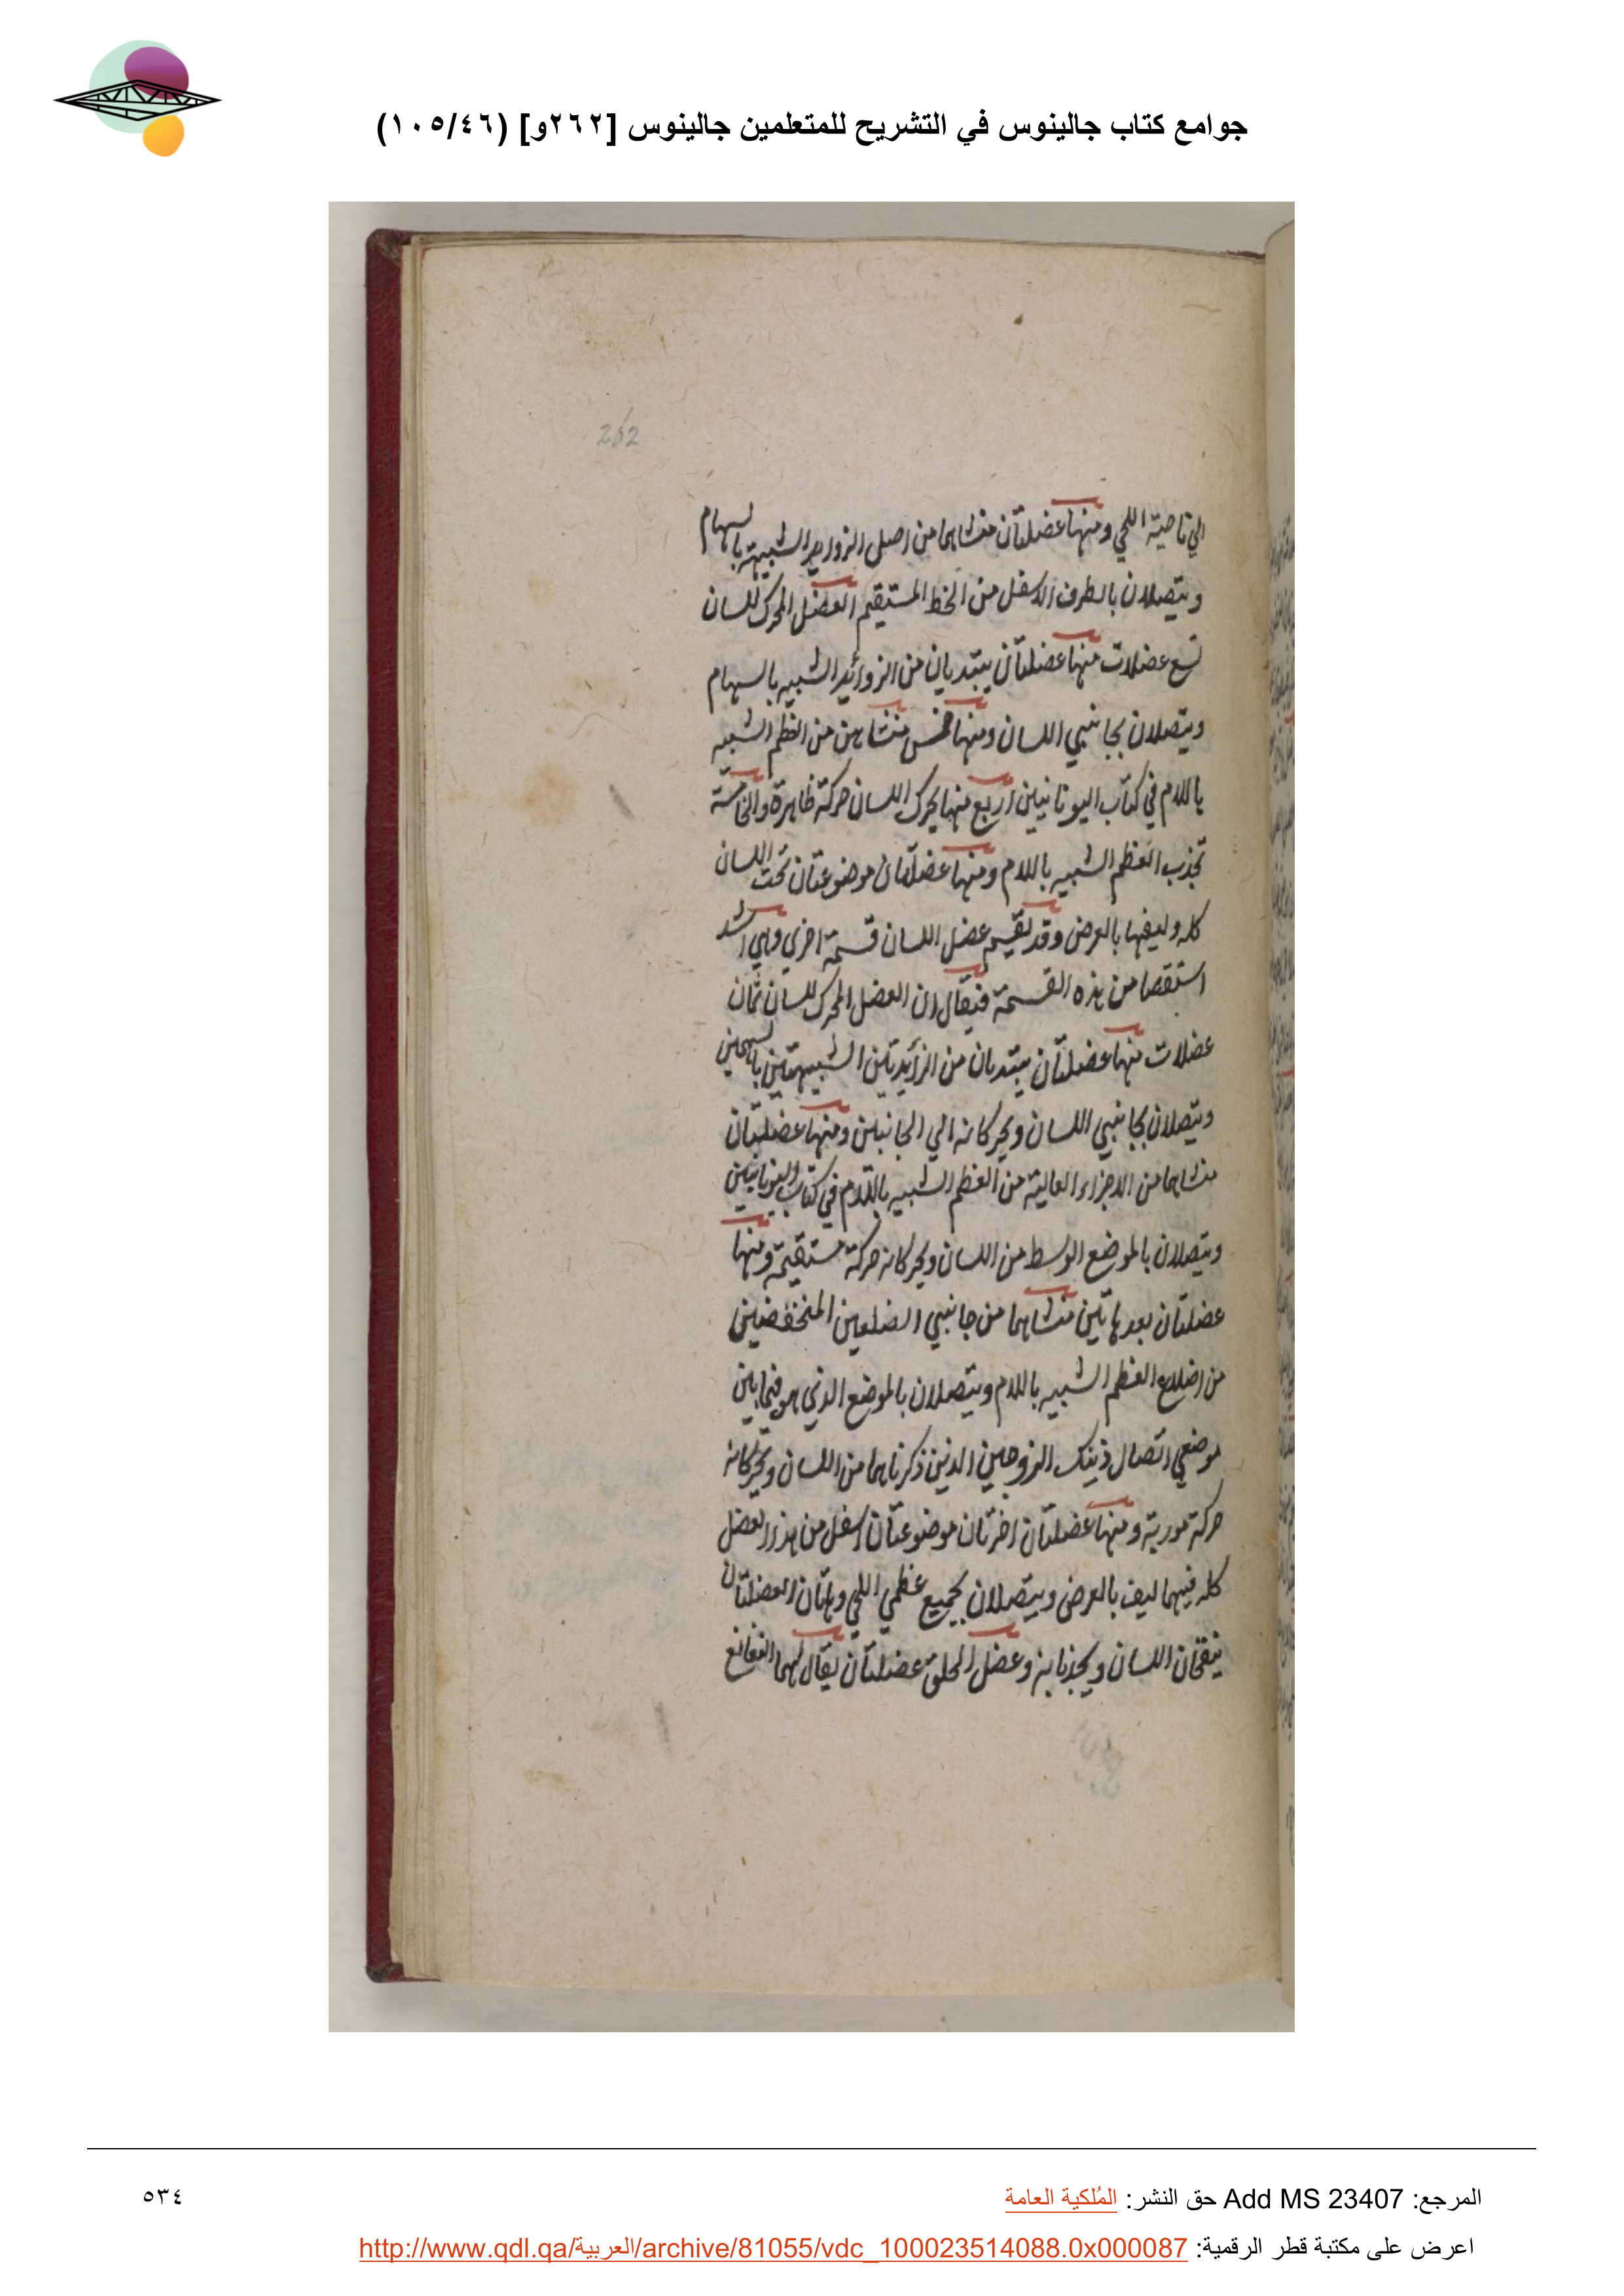 جوامع كتاب جالينوس في التشريح للمتعلمين جالينوس [٢٦٢و] (١٠٥/٤٦)
262
الي ناحية اللحي ومنها عضلتان منشاهما من اصل الزوايد الشبيهة بالسهام
ويتصلان بالطرف الاسفل من الخط المستقيم العضل المحرك للسان
تسع عضلات منها عضلتان يبتديان من الزوائد الشبيه بالسهام
ويتصلان بجانبي اللسان ومنها خمس منشاهن من العظم الشبيه
باللام في كتاب اليونانيين اربع منها يحرك اللسان حركة ظاهرة والخامسة
تجذب العظم الشبيه باللام ومنها عضلتان موضوعتان تحت اللسان
كله وليفها بالعرض وقد يقسم عضل اللسان قسمة اخري وهي اشد
استقصا من هذه القسمة فيقال ان العضل المحرك للسان ثمان
عضلات منها عضلتان يبتديان من الزايدتين الشبيهتين بالسهمين
ويتصلان بجانبي اللسان ويحركانه الي الجانبين ومنها عضلتان
منشاهما من الاجزاء العالية من العظم الشبيه باللام في كتاب اليونانيين
ويتصلان بالموضع الوسط من اللسان ويحركانه حركة مستقيمة ومنها
عضلتان بعد هاتين منشاهما من جانبي الضلعين المنخفضين
من اضلاع العظم الشبيه باللام ويتصلان بالموضع الذي هو فيما بين
موضعي اتصال ذينك الزوجين الذين ذكرناهما من اللسان ويحركانه
حركة موربة ومنها عضلتان اخرتان موضوعتان اسفل من هذا العضل
كله فيهما ليف بالعرض ويتصلان بجميع عظمي اللحي وهاتان العضلتان
اللسان ويجذبانه وعضل الحلق عضلتان يقال لهما النغانغ
المرجع: Add MS 23407 حق النشر: المُلكية العامة
٥٣٤
اعرض على مكتبة قطر الرقمية: http://www.qdl.qa/العربية/archive/81055/vdc_100023514088.0x000087